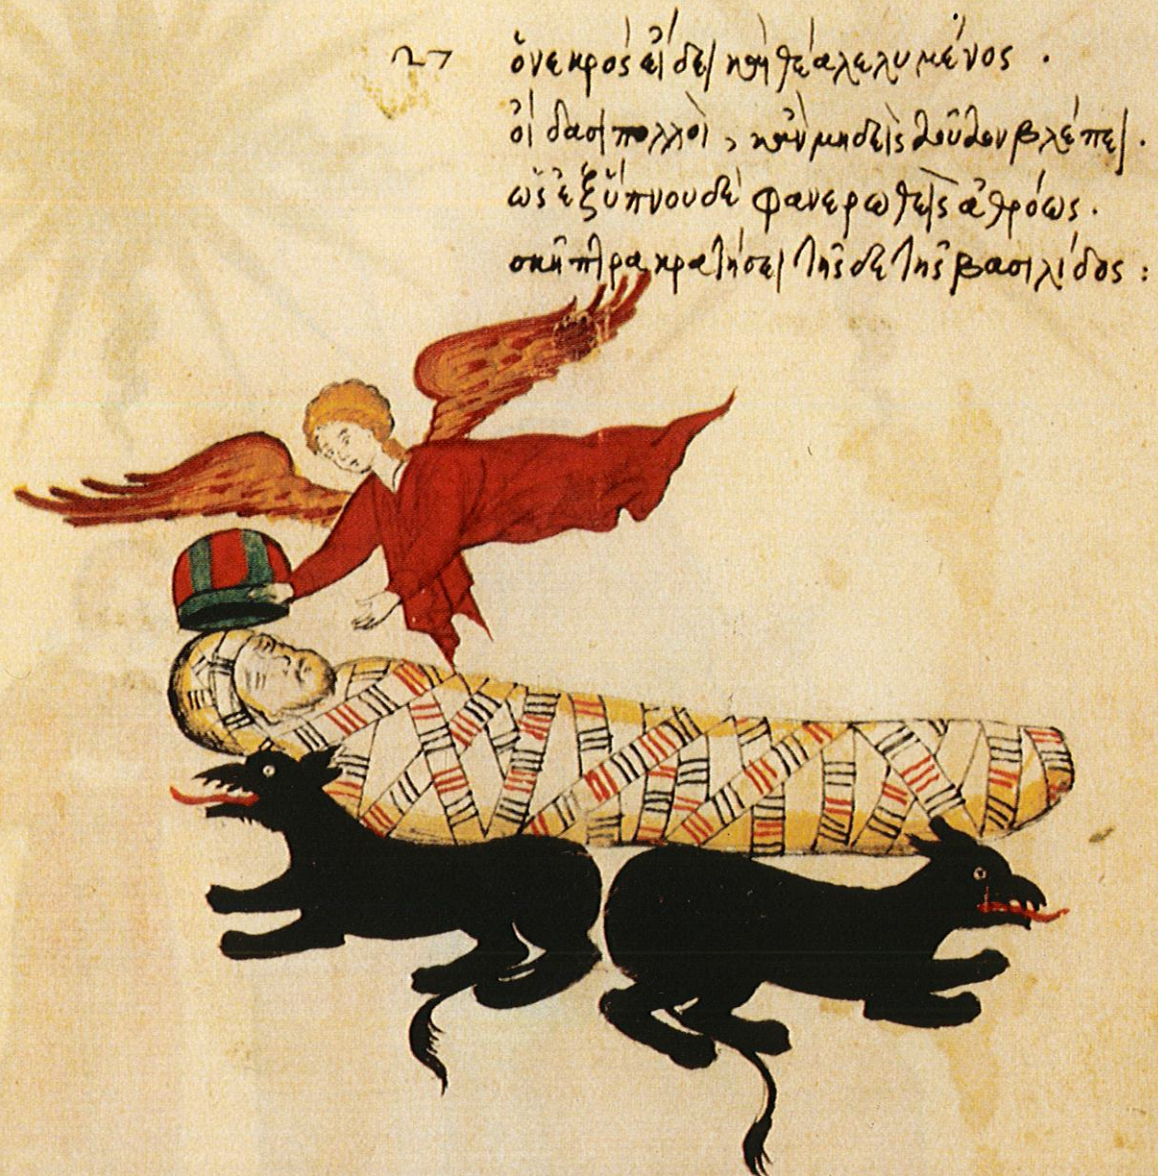 27 ὁ νεκρός εἴδει καὶ θέα λελυμένος ·
οἴδασι πολλοὶ, κἂν μηδεὶς τοῦτον βλέπει.
ὡς ἐξ ὕπνου δὲ φανερωθεὶς ἀθρόως.
σκῆπτρα κρατήσει τῆσδε τῆς βασιλίδος :